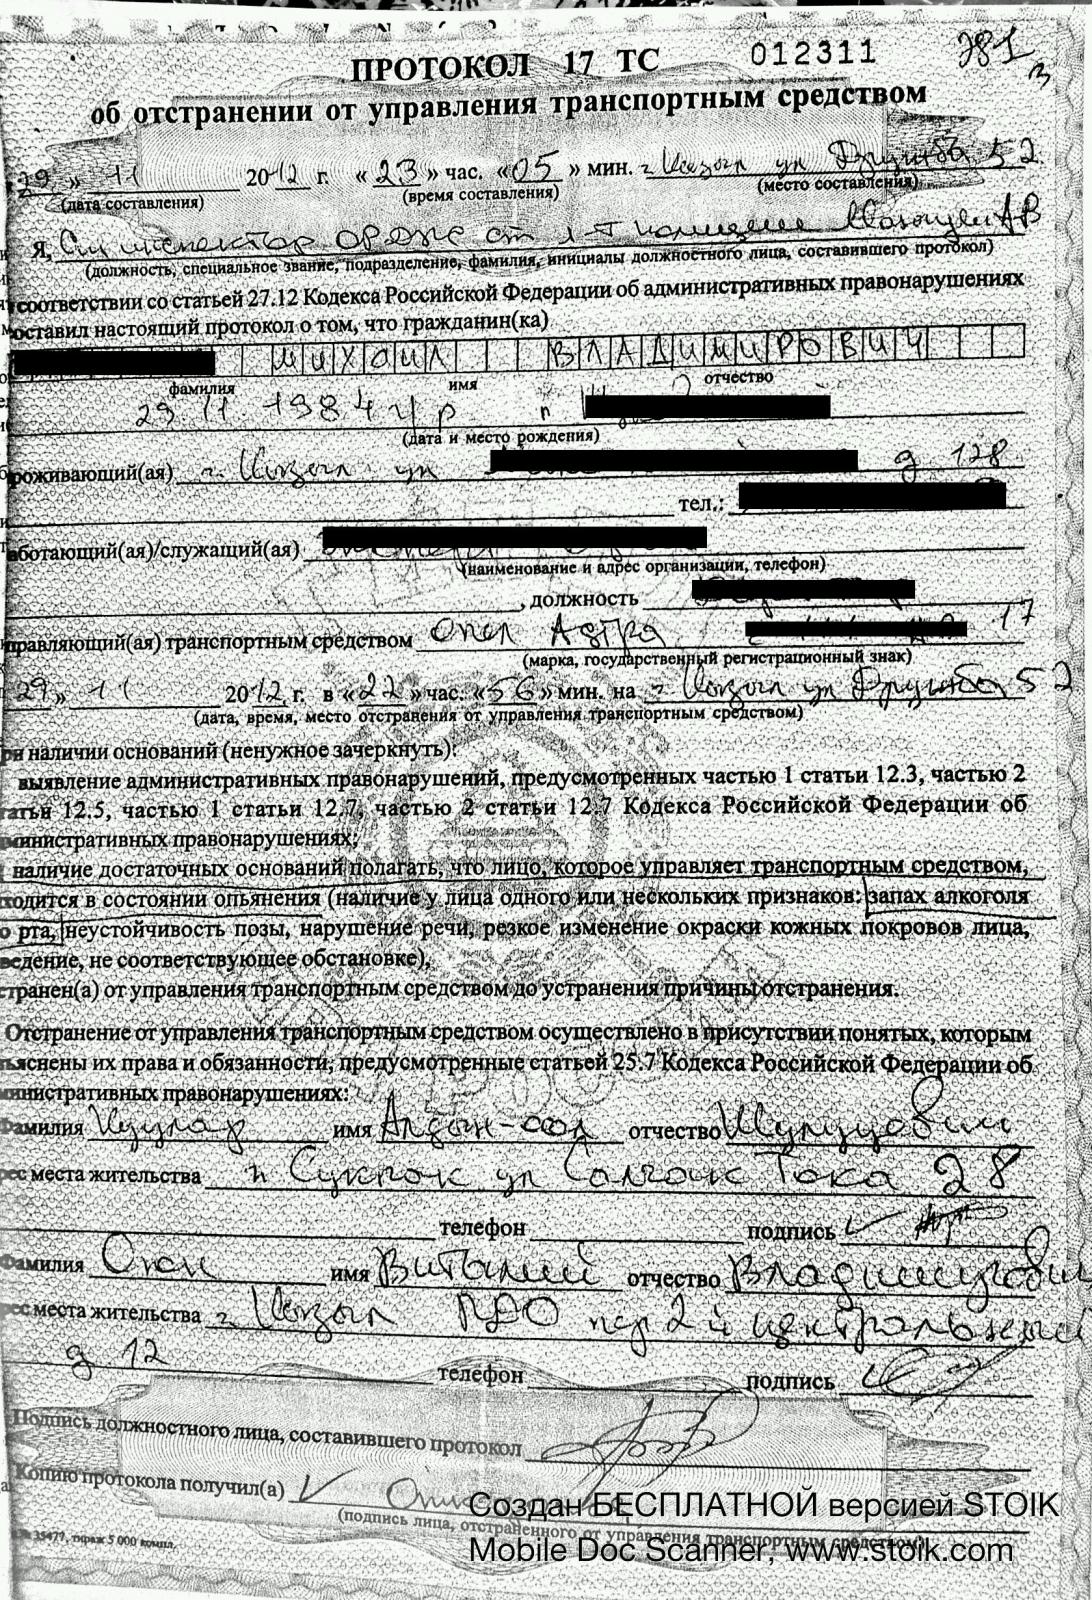 ПРОТОКОЛ 17 ТС 012311 381
об отстранении от управления транспортным средством
29 » 11 2012 г. « 23 » час. «05 » мин. г. Кызыл ул Дружба 52.
(дата составления) (время составления) (место составления)
Я, инспектор ст л-т полиции А В
(должность, специальное звание, подразделение, фамилия, инициалы должностного лица, составившего протокол)
соответствии со статьей 27.12 Кодекса Российской Федерации об административных правонарушениях
составил настоящий протокол о том, что гражданин(ка)
МИХАИЛ ВЛАДИМИРОВИЧ
фамилия имя отчество
29 11 1984 г р п
(дата и место рождения)
проживающий(ая) г. Кызыл ул д 128
тел.:
работающий(ая)/служащий(ая)
(наименование и адрес организации, телефон)
, должность
управляющий(ая) транспортным средством Опел Астра 17
(марка, государственный регистрационный знак)
29 » 11 2012 г. в «22 » час. «56 » мин. на г. Кызыл ул Дружба 52
(дата, время, место отстранения от управления транспортным средством)
ри наличии оснований (ненужное зачеркнуть):
выявление административных правонарушений, предусмотренных частью 1 статьи 12.3, частью 2
татьи 12.5, частью 1 статьи 12.7, частью 2 статьи 12.7 Кодекса Российской Федерации об
министративных правонарушениях;
наличие достаточных оснований полагать, что лицо, которое управляет транспортным средством,
ходится в состоянии опьянения (наличие у лица одного или нескольких признаков: запах алкоголя
о рта, неустойчивость позы, нарушение речи, резкое изменение окраски кожных покровов лица,
ведение, не соответствующее обстановке),
странен(а) от управления транспортным средством до устранения причины отстранения.
Отстранение от управления транспортным средством осуществлено в присутствии понятых, которым
ъяснены их права и обязанности, предусмотренные статьей 25.7 Кодекса Российской Федерации об
министративных правонарушениях:
Фамилия Куулар имя Алдын-оол отчество
рес места жительства п Сукпак ул Салчак Тока 28
телефон подпись
Фамилия имя Виталий отчество Владимирович
рес места жительства г. Кызыл ПДО пер 2й центральный
д 12 телефон подпись
Подпись должностного лица, составившего протокол
Копию протокола получил(а)
(подпись лица, отстраненного от управления транспортным средством)
35477, тираж 5 000 компл.
Создан БЕСПЛАТНОЙ версией STOIK
Mobile Doc Scanner, www.stoik.com